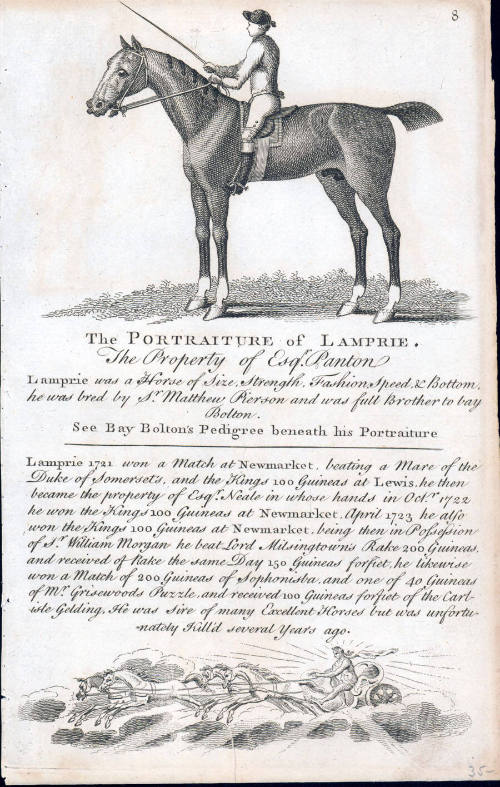 8
The PORTRAITURE of LAMPRIE.
The Property of Esqr. Panton
Lamprie was a Horse of Size, Strength, Fashion, Speed, & Bottom,
he was bred by Sr. Matthew Pierson and was full Brother to bay
Bolton.
See Bay Bolton's Pedigree beneath his Portraiture
Lamprie 1721 won a Match at Newmarket, beating a Mare of the
Duke of Somerset's, and the Kings 100 Guineas at Lewis, he then
became the property of Esqr. Neile in whose hands in Octr. 1722
he won the Kings 100 Guineas at Newmarket, April 1723 he also
won the Kings 100 Guineas at Newmarket, being then in Possession
of Sr. William Morgan he beat Lord Milsingtown's Rake 200 Guineas,
and received of Rake the same Day 150 Guineas forfiet, he likewise
won a Match of 200 Guineas of Sophonisba, and one of 40 Guineas
of Mr. Grisewoods Puzzle, and received 100 Guineas forfiet of the Carl-
isle Gelding, He was Sire of many Excellent Horses but was unfortu-
nately Kill'd several Years ago.
35-